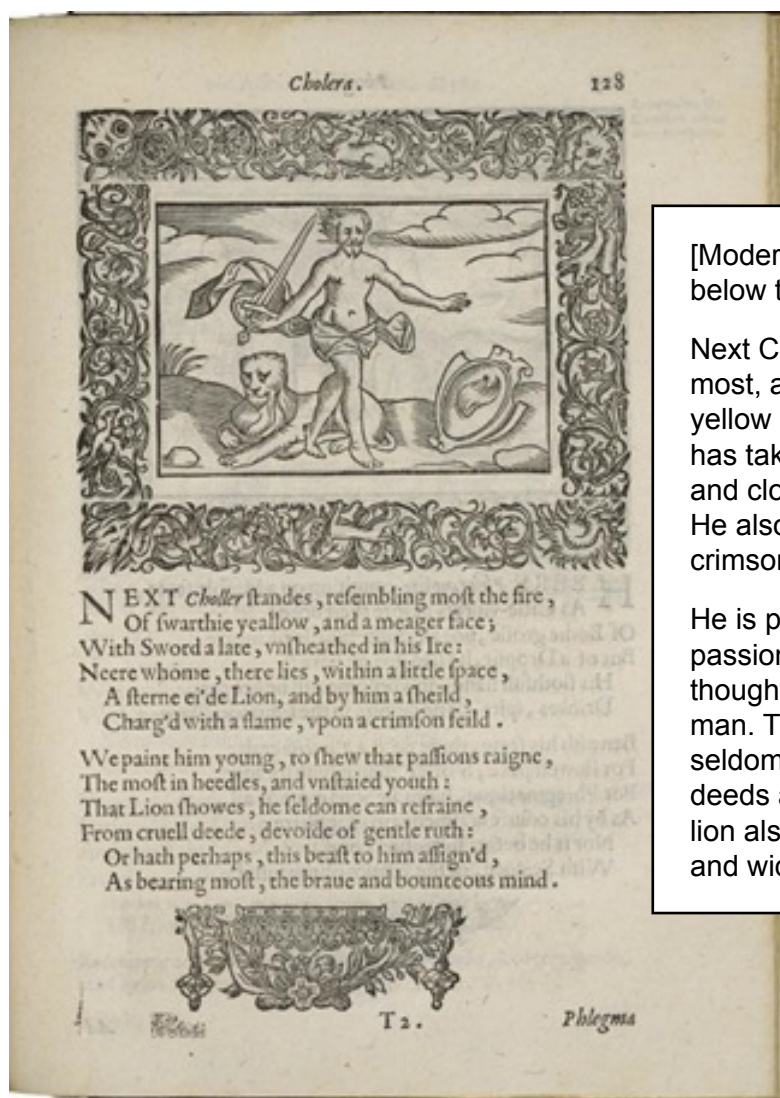 Cholera.
128
NEXT Choller ſtandes, reſembling moſt the fire,
Of ſwarthie yeallow, and a meager face;
With Sword a late, vnſheathed in his Ire:
Neere whome, there lies, within a little ſpace,
A ſterne ei'de Lion, and by him a ſheild,
Charg'd with a flame, vpon a crimſon feild.
We paint him young, to ſhew that paſſions raigne,
The moſt in heedles, and vnſtaied youth:
That Lion ſhowes, he ſeldome can refraine,
From cruell deede, devoide of gentle ruth:
Or hath perhaps, this beaſt to him aſſign'd,
As bearing moſt, the braue and bounteous mind.
T 2.
Phlegma
[Moder
below t
Next C
most, a
yellow
has tak
and clo
He also
crimson
He is p
passion
though
man. T
seldom
deeds a
lion als
and wid